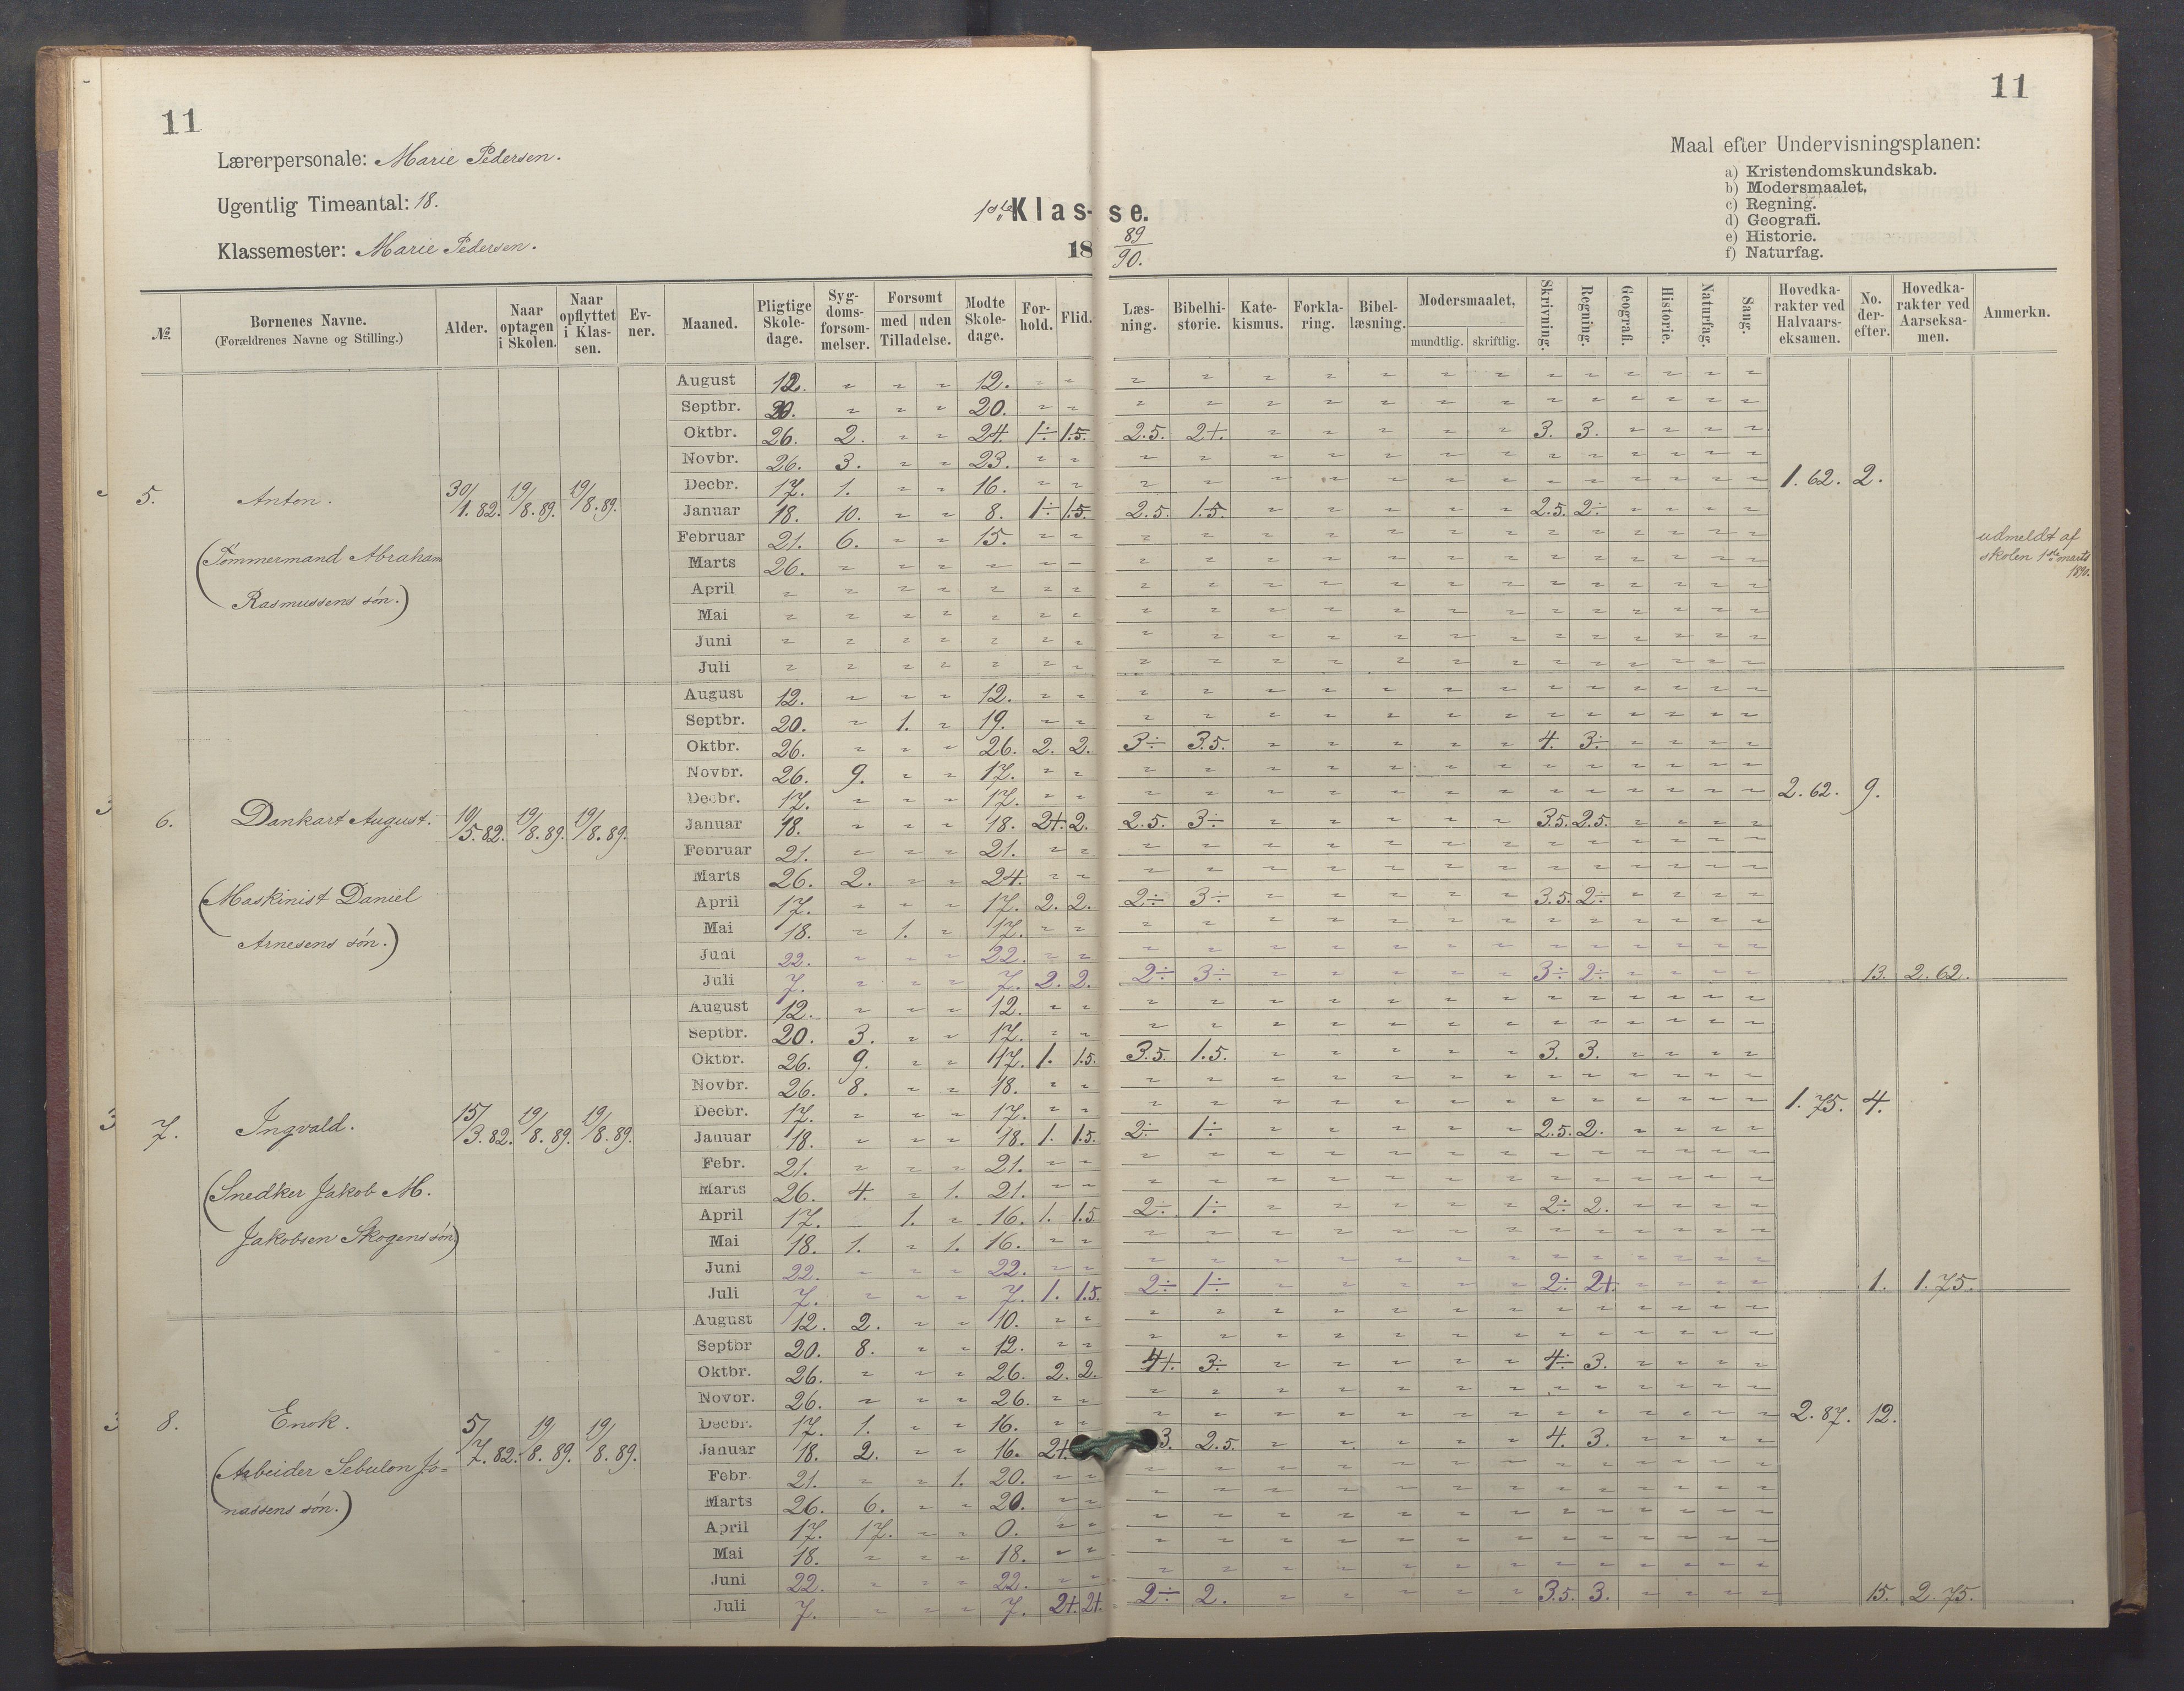 11
11
Lærerpersonale: Marie Pedersen.
Ugentlig Timeantal: 18.
Klassemester: Marie Pedersen.
1ste Klas-se.
18 89/90.
Maal efter Undervisningsplanen:
a) Kristendomskundskab.
b) Modersmaalet.
c) Regning.
d) Geografi.
e) Historie.
f) Naturfag.
№ | Børnenes Navne. (Forældrenes Navne og Stilling.) | Alder. | Naar optagen i Skolen. | Naar opflyttet i Klassen. | Evner. | Maaned. | Pligtige Skoledage. | Sygdomsforsømmelser. | Forsømt med uden Tilladelse. | Mødte Skoledage. | Forhold. | Flid. | Læsning. | Bibelhistorie. | Katekismus. | Forklaring. | Bibellæsning. | Modersmaalet, mundtlig. skriftlig. | Skrivning. | Regning. | Geografi. | Historie. | Naturfag. | Sang. | Hovedkarakter ved Halvaarseksamen. | No. derefter. | Hovedkarakter ved Aarseksamen. | Anmerkn.
5. Anton. 30/1.82. 19/8.89. 19/8.89.
(Tømmermand Abraham
Rasmussens søn.)
August 12. " " " 12. " "
Septbr. 20. " " " 20. " "
Oktbr. 26. 2. " " 24. 1÷ 1.5. 2.5. 2+. " " " " " 3. 3.
Novbr. 26. 3. " " 23. " "
Decbr. 17. 1. " " 16. " " 1.62. 2.
Januar 18. 10. " " 8. 1÷ 1.5. 2.5. 1.5. " " " " " 2.5. 2÷
Februar 21. 6. " " 15. " "
Marts 26. " " " " " "
udmeldt af
skolen 1ste marts
1890.
April " " " " " " "
Mai " " " " " " "
Juni " " " " " " "
Juli " " " " " " "
6. Dankart August. 19/5.82. 19/8.89. 19/8.89.
(Maskinist Daniel
Arnesens søn.)
August 12. " " " 12. " "
Septbr. 20. " 1. " 19. " "
Oktbr. 26. " " " 26. 2. 2. 3÷ 3.5. " " " " " 4. 3÷
Novbr. 26. 9. " " 17. " "
Decbr. 17. " " " 17. " " 2.62. 9.
Januar 18. " " " 18. 2+. 2. 2.5. 3÷ " " " " " 3.5. 2.5.
Februar 21. " " " 21. " "
Marts 26. 2. " " 24. " "
April 17. " " " 17. 2. 2. 2÷ 3÷ " " " " " 3.5. 2÷
Mai 18. " 1. " 17. " "
Juni 22. " " " 22. " "
Juli 7. " " " 7. 2. 2. 2÷ 3÷ " " " " " 3÷ 2÷ 13. 2.62.
7. Ingvald. 15/3.82. 19/8.89. 19/8.89.
(Snedker Jakob M.
Jakobsen Skogens søn)
August 12. " " " 12. " "
Septbr. 20. 3. " " 17. " "
Oktbr. 26. 9. " " 17. 1. 1.5. 3.5. 1.5. " " " " " 3. 3.
Novbr. 26. 8. " " 18. " "
Decbr. 17. " " " 17. " " 1.75. 4.
Januar 18. " " " 18. 1. 1.5. 2÷ 1÷ " " " " " 2.5. 2.
Febr. 21. " " " 21. " "
Marts 26. 4. " 1. 21. " "
April 17. 1. " 16. 1. 1.5 2÷ 1÷ " " " " " 2÷ 2.
Mai 18. 1. " 1. 16. " "
Juni 22. " " " 22. " "
Juli 7. " " " 7. 1. 1.5. 2÷ 1÷ " " " " " 2÷ 2+. 1. 1.75.
8. Enok. 5/7.82. 19/8.89. 19/8.89.
(Arbeider Sebulon Jo=
nassens søn.)
August 12. 2. " " 10. " "
Septbr 20. 8. " " 12. " "
Oktbr. 26. " " " 26. 2. 2. 4+. 3÷ " " " " " 4÷ 3.
Novbr. 26. " " " 26. " "
Decbr. 17. 1. " " 16. " " 2.87. 12.
Januar 18. 2. " " 16. 2+. 3. 2.5. " " " " " 4. 3.
Febr 21. " " 1. 20. " "
Marts 26. 6. " " 20. " "
April 17. 17. " " 0. " "
Mai 18. " " " 18. " "
Juni 22. " " " 22. " "
Juli 7. " " " 7. 2+. 2+. 2÷ 2. " " " " " 3.5. 3. 15. 2.75.